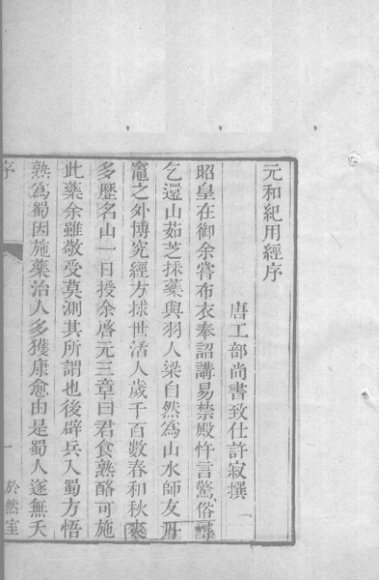 元和紀用經序
唐工部尚書致仕許寂撰
昭皇在御余嘗布衣奉詔講易禁殿忤言驚俗尋
乞還山茹芝採藥與羽人梁自然為山水師友丹
竈之外博究經方捄世活人歲千百數春和秋爽
多歷名山一日授余啓元三章曰君食熟酪可施
此藥余雖敬受莫測其所謂也後辟兵入蜀方悟
熟為蜀因施藥治人多獲康愈由是蜀人遂無夭
序
一
於然室